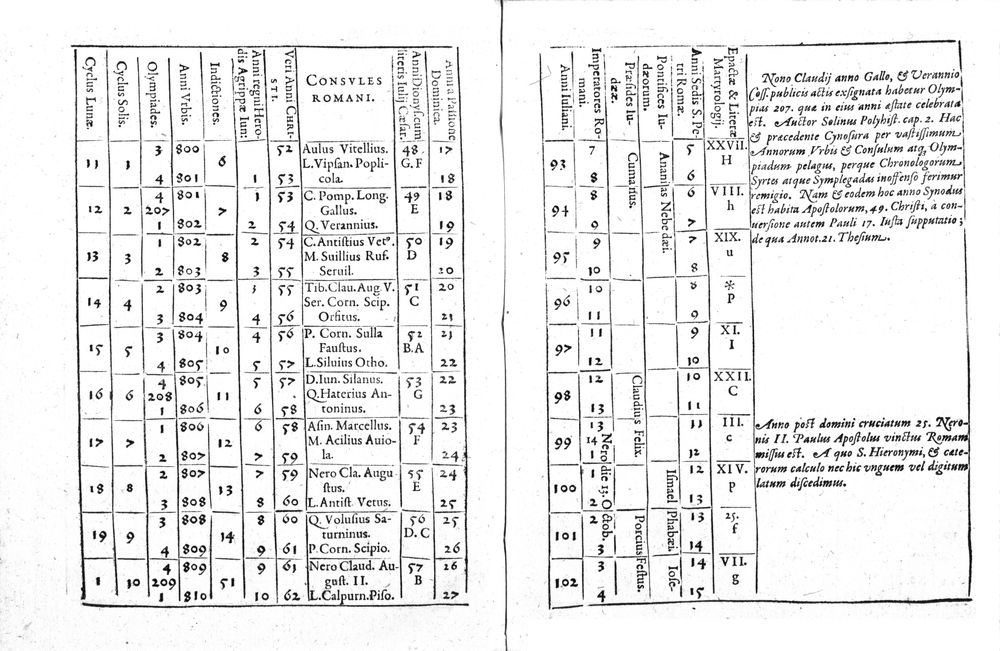 Cyclus Lunæ. Cyclus Solis. Olympiades. Anni Vrbis. Indictiones. Anni regni Herodis Agrippæ Iun: Veri Anni CHRISTI. CONSVLES ROMANI. Anni Dionys. cum literis Iulij Cæsar. Anni a Passione Dominica.
11 1 3 800 6 52 Aulus Vitellius. 48 17
L. Vipsan. Popli- G. F
4 801 1 53 cola. 18
12 2 4 801 7 1 53 C. Pomp. Long. 49 18
207 Gallus. E
1 802 2 54 Q. Verannius. 19
13 3 1 802 8 2 54 C. Antistius Vetꝰ. 50 19
M. Suillius Ruf. D
2 803 3 55 Seruil. 20
14 4 2 803 9 3 55 Tib. Clau. Aug V. 51 20
Ser. Corn. Scip. C
3 804 4 56 Orfitus. 21
15 5 3 804 10 4 56 P. Corn. Sulla 52 21
Faustus. B. A
4 805 5 57 L. Siluius Otho. 22
16 6 4 805 11 5 57 D. Iun. Silanus. 53 22
208 Q. Haterius An- G
1 806 6 58 toninus. 23
17 7 1 806 12 6 58 Asin. Marcellus. 54 23
M. Acilius Auio- F
2 807 7 59 la. 24
18 8 2 807 13 7 59 Nero Cla. Augu 55 24
stus. E
3 808 8 60 L. Antist. Vetus. 25
19 9 3 808 14 8 60 Q. Volusius Sa- 56 25
turninus. D. C
4 809 9 61 P. Corn. Scipio. 26
1 10 4 809 51 9 61 Nero Claud. Au 57 26
209 gust. II. B
1 810 10 62 L. Calpurn. Piso. 27
Anni Iuliani. Imperatores Romani. Præsides Iudææ. Pontifices Iudæorum. Anni Sedis S. Petri Romæ. Epactæ & Literæ Martyrologij.
93 7 Cumanus. Ananias Nebedæi. 5 XXVII.
8 6 H
94 8 6 VIII.
9 7 h
95 9 7 XIX.
10 8 u
96 10 8 *
11 9 P
97 11 9 XI.
12 10 I
98 12 Claudius Felix. 10 XXII.
13 11 C
99 13 11 III.
14 Nero die 13. Octob. c
1 12
100 1 Ismael Phabæi. 12 XIV.
2 13 P
101 2 Porcius Festus. 13 25.
3 14 f
102 3 Iose- 14 VII.
4 15 g
Nono Claudij anno Gallo, & Verannio
Coss. publicis actis exsignata habetur Olym-
pias 207. qua in eius anni æstate celebrata
est. Auctor Solinus Polyhist. cap. 2. Hac
& præcedente Cynosura per vastissimum
Annorum Vrbis & Consulum atq; Olym-
piadum pelagus, perque Chronologorum
Syrtes atque Symplegadas inoffenso ferimur
remigio. Nam & eodem hoc anno Synodus
est habita Apostolorum, 49. Christi, à con-
uersione autem Pauli 17. Iusta supputatio;
de qua Annot. 21. Thesium.
Anno post domini cruciatum 25. Nero-
nis II. Paulus Apostolus vinctus Romam
missus est. A quo S. Hieronymi, & cæte-
rorum calculo nec hic vnguem vel digitum
latum discedimus.